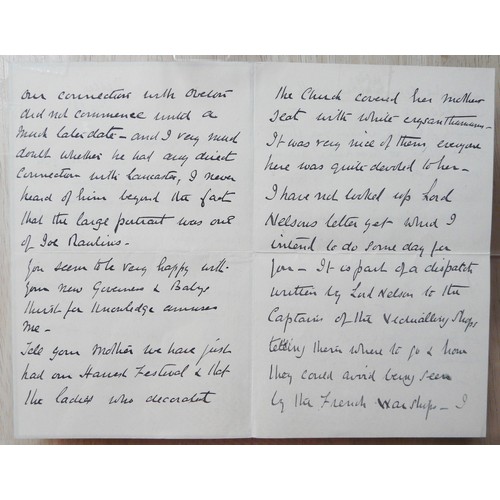 our connection with Overton
did not commence until a
much later date - and I very much
doubt whether he had any direct
connection with Lancaster, I never
heard of him beyond the fact
that the large portrait was one
of Joe Rawlins -
You seem to be very happy with
your new Governess & Babys
thirst for Knowledge amuses
me -
Tell your Mother we have just
had our Harvest Festival & that
the ladies who decorated
the Church covered her mothers
Seat with white crysanthamums -
It was very nice of them, everyone
here was quite devoted to her -
I have not looked up Lord
Nelsons letter yet which I
intend to do some day for
you - It is part of a dispatch
written by Lord Nelson to the
Captains of the Victualling Ships
telling them where to go & how
they could avoid being seen
by the French warships - I